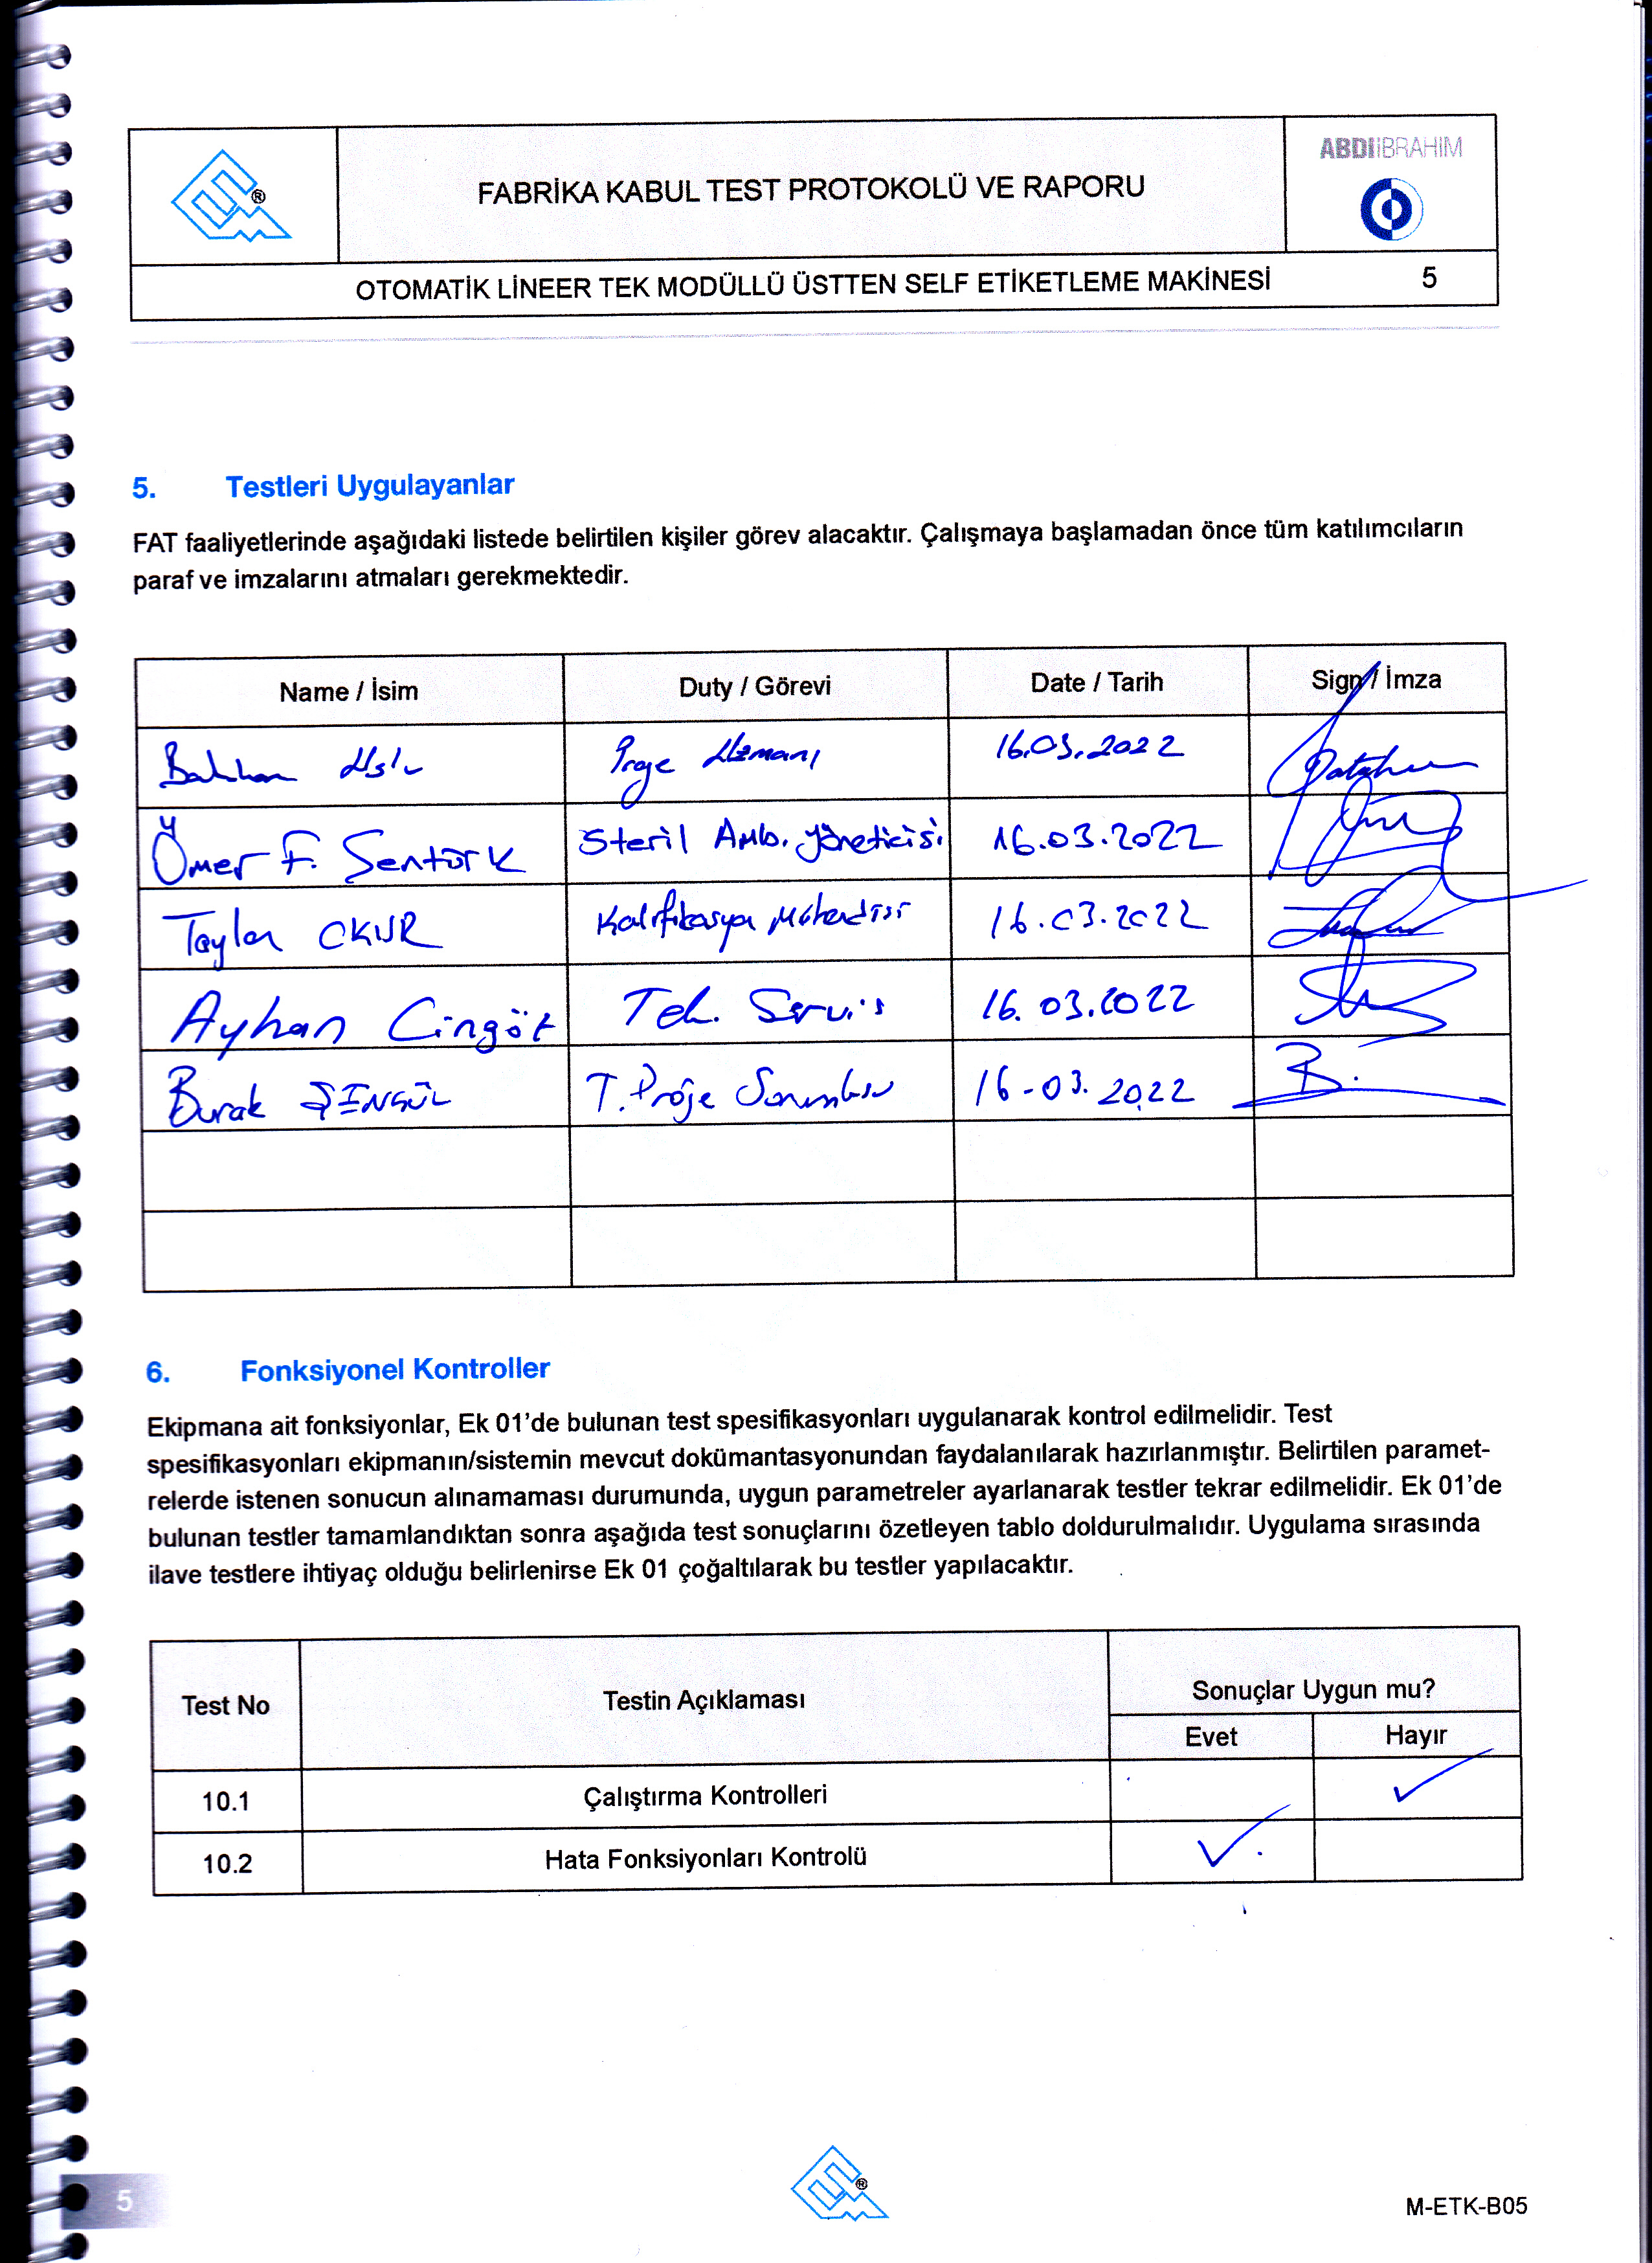 ABDİİBRAHİM
FABRİKA KABUL TEST PROTOKOLÜ VE RAPORU
OTOMATİK LİNEER TEK MODÜLLÜ ÜSTTEN SELF ETİKETLEME MAKİNESİ 5
5. Testleri Uygulayanlar
FAT faaliyetlerinde aşağıdaki listede belirtilen kişiler görev alacaktır. Çalışmaya başlamadan önce tüm katılımcıların
paraf ve imzalarını atmaları gerekmektedir.
Name / İsim Duty / Görevi Date / Tarih Sign / İmza
Proje Uzmanı 16.03.2022
Ömer F. Şentürk Steril Amb. Yöneticisi 16.03.2022
Taylan OKUR Kalifikasyon Mühendisi 16.03.2022
Ayhan Cingöt Tek. Servis 16.03.2022
Burak ŞENGÜL T. Proje Sorumlusu 16-03.2022
6. Fonksiyonel Kontroller
Ekipmana ait fonksiyonlar, Ek 01'de bulunan test spesifikasyonları uygulanarak kontrol edilmelidir. Test
spesifikasyonları ekipmanın/sistemin mevcut dokümantasyonundan faydalanılarak hazırlanmıştır. Belirtilen paramet-
relerde istenen sonucun alınamaması durumunda, uygun parametreler ayarlanarak testler tekrar edilmelidir. Ek 01'de
bulunan testler tamamlandıktan sonra aşağıda test sonuçlarını özetleyen tablo doldurulmalıdır. Uygulama sırasında
ilave testlere ihtiyaç olduğu belirlenirse Ek 01 çoğaltılarak bu testler yapılacaktır.
Test No Testin Açıklaması Sonuçlar Uygun mu?
Evet Hayır
10.1 Çalıştırma Kontrolleri ✓
10.2 Hata Fonksiyonları Kontrolü ✓
5
M-ETK-B05